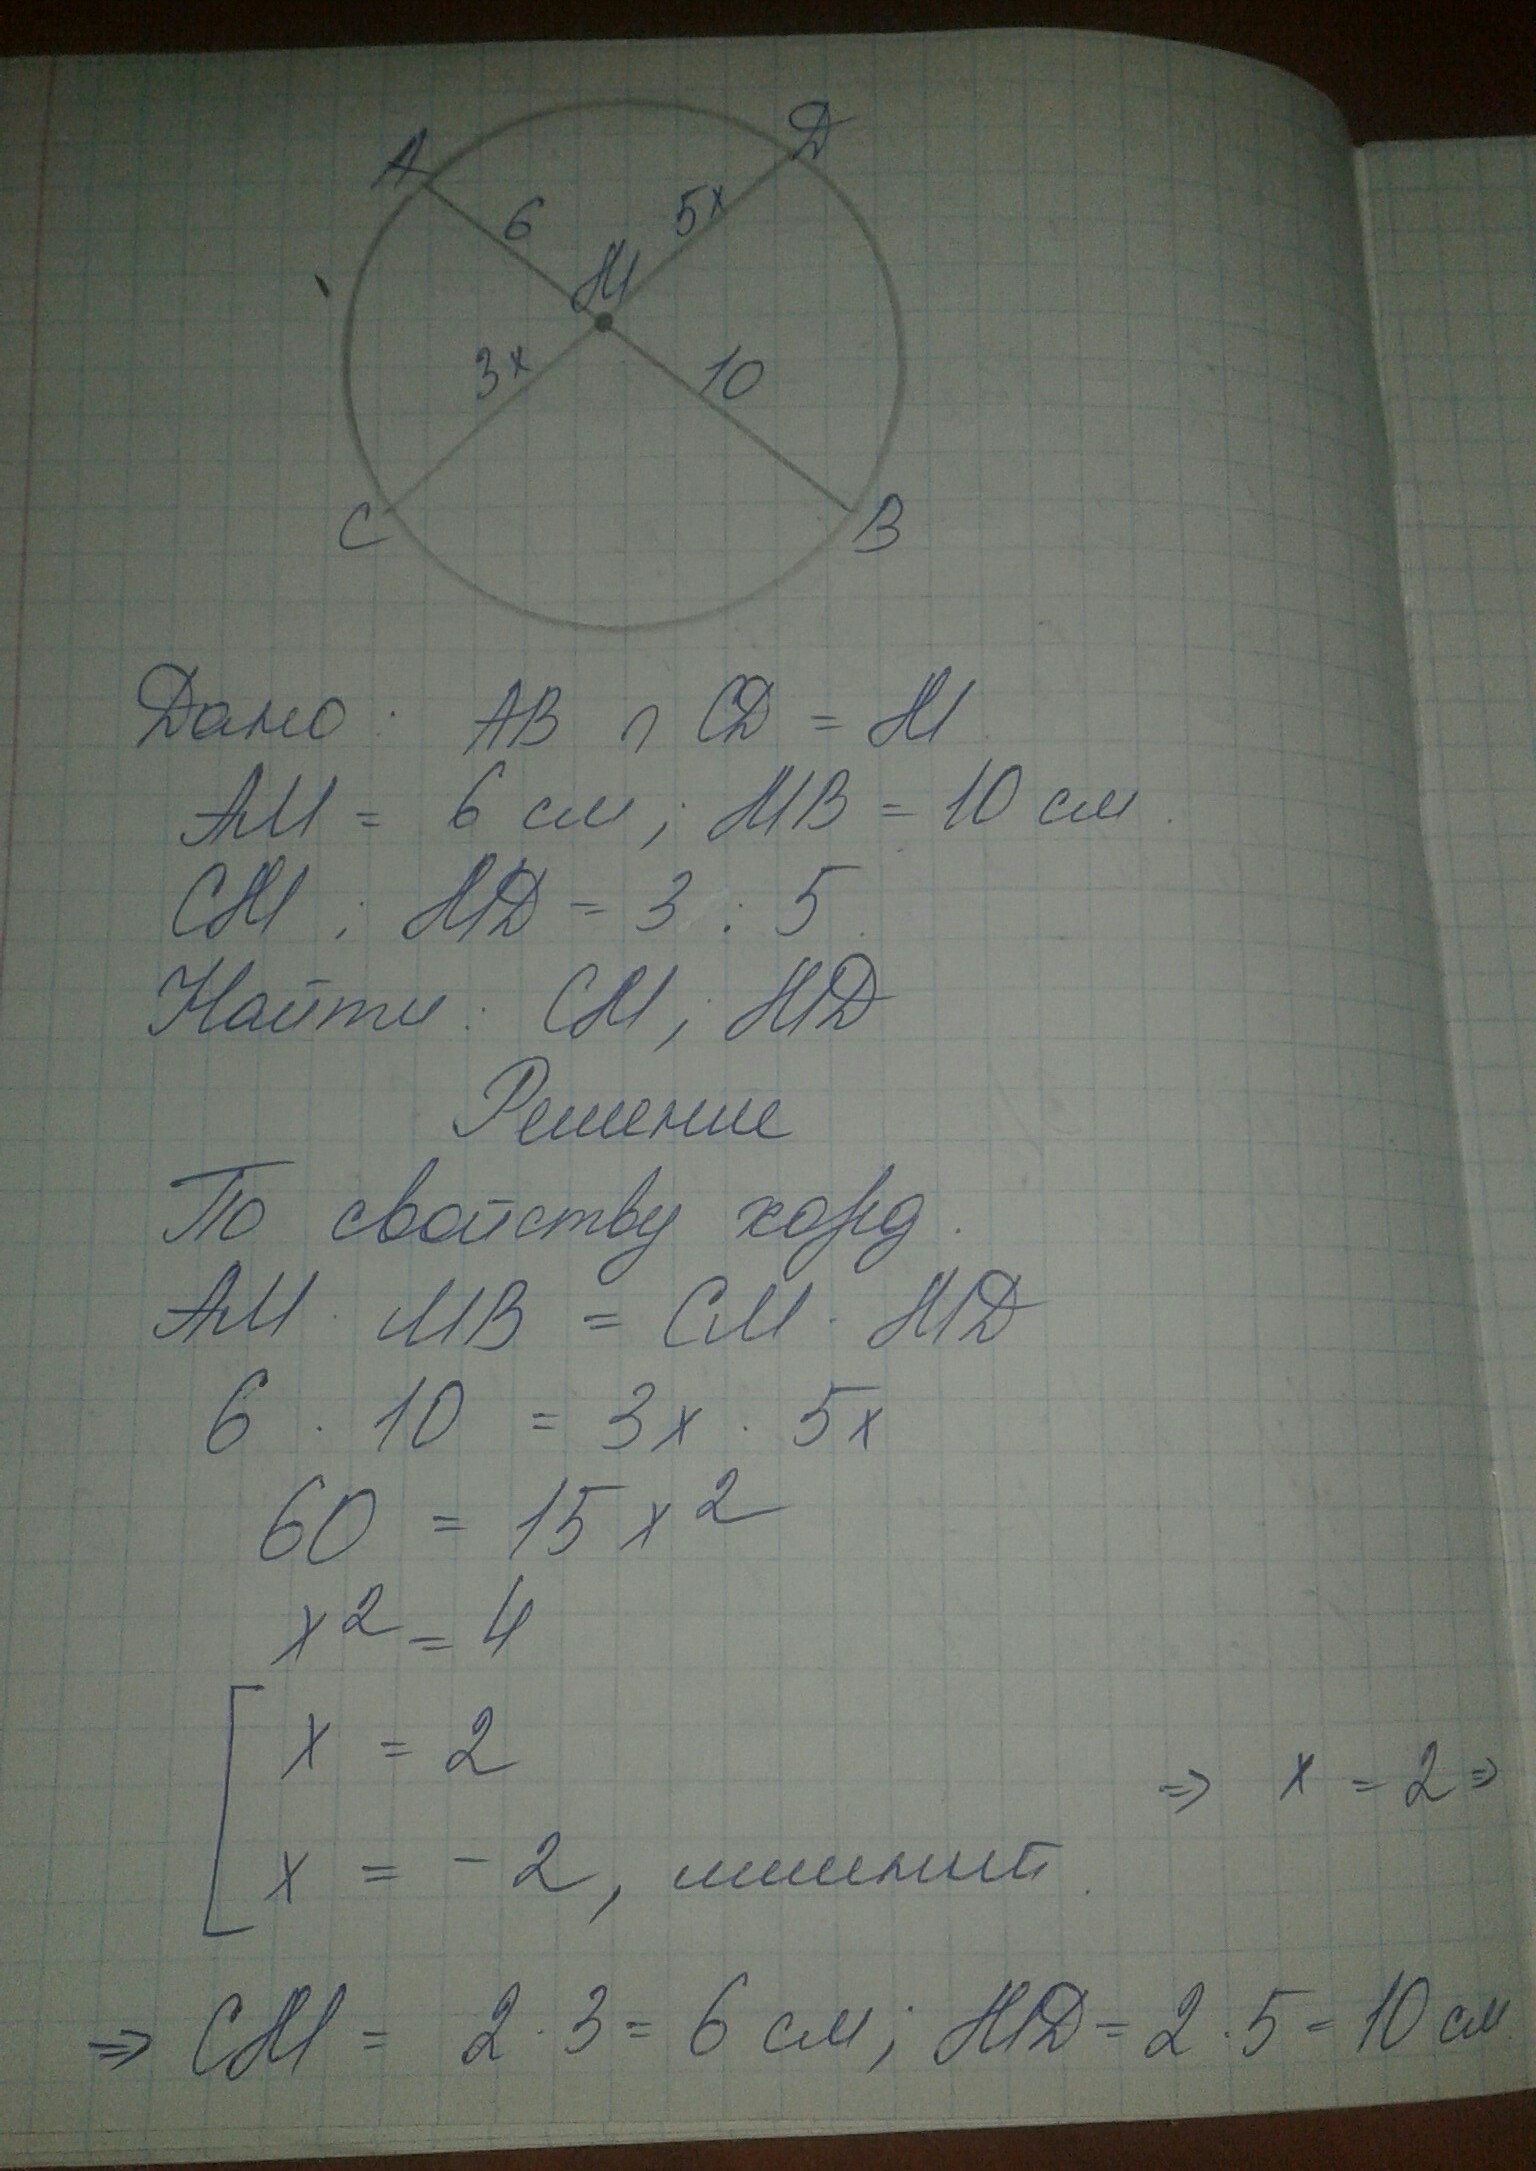 A
D
6
5x
M
3x
10
C
B
Дано: AB ∩ CD = M.
AM = 6 см; MB = 10 см.
CM : MD = 3 : 5.
Найти: CM; MD
Решение
По свойству хорд.
AM · MB = CM · MD
6 · 10 = 3x · 5x
60 = 15x²
x² = 4
x = 2
x = -2, лишний.
⇒ x = 2 ⇒
⇒ CM = 2 · 3 = 6 см; MD = 2 · 5 = 10 см